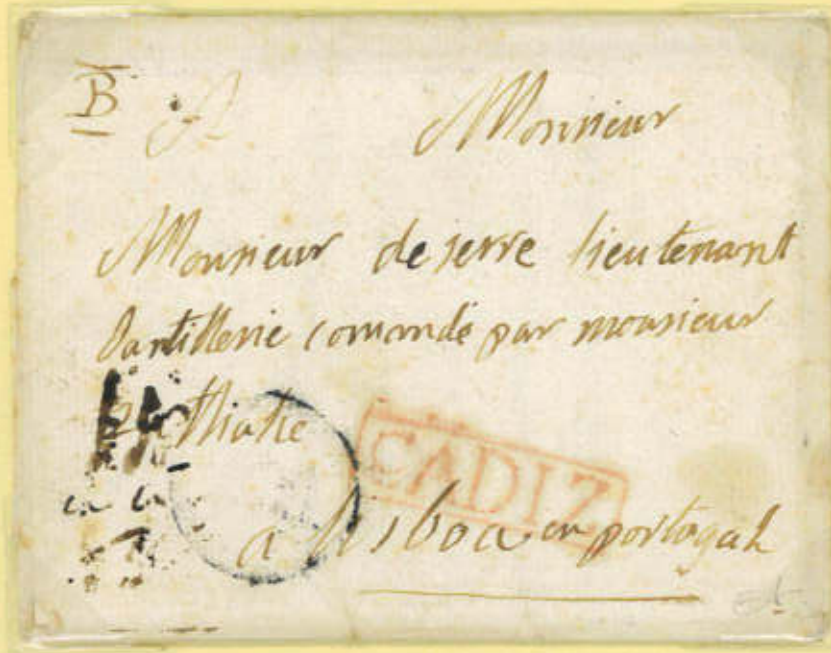 B
Monsieur
Monsieur de serre lieutenant
dartillerie comandé par monsieur
CADIZ
a lisboa en portogal